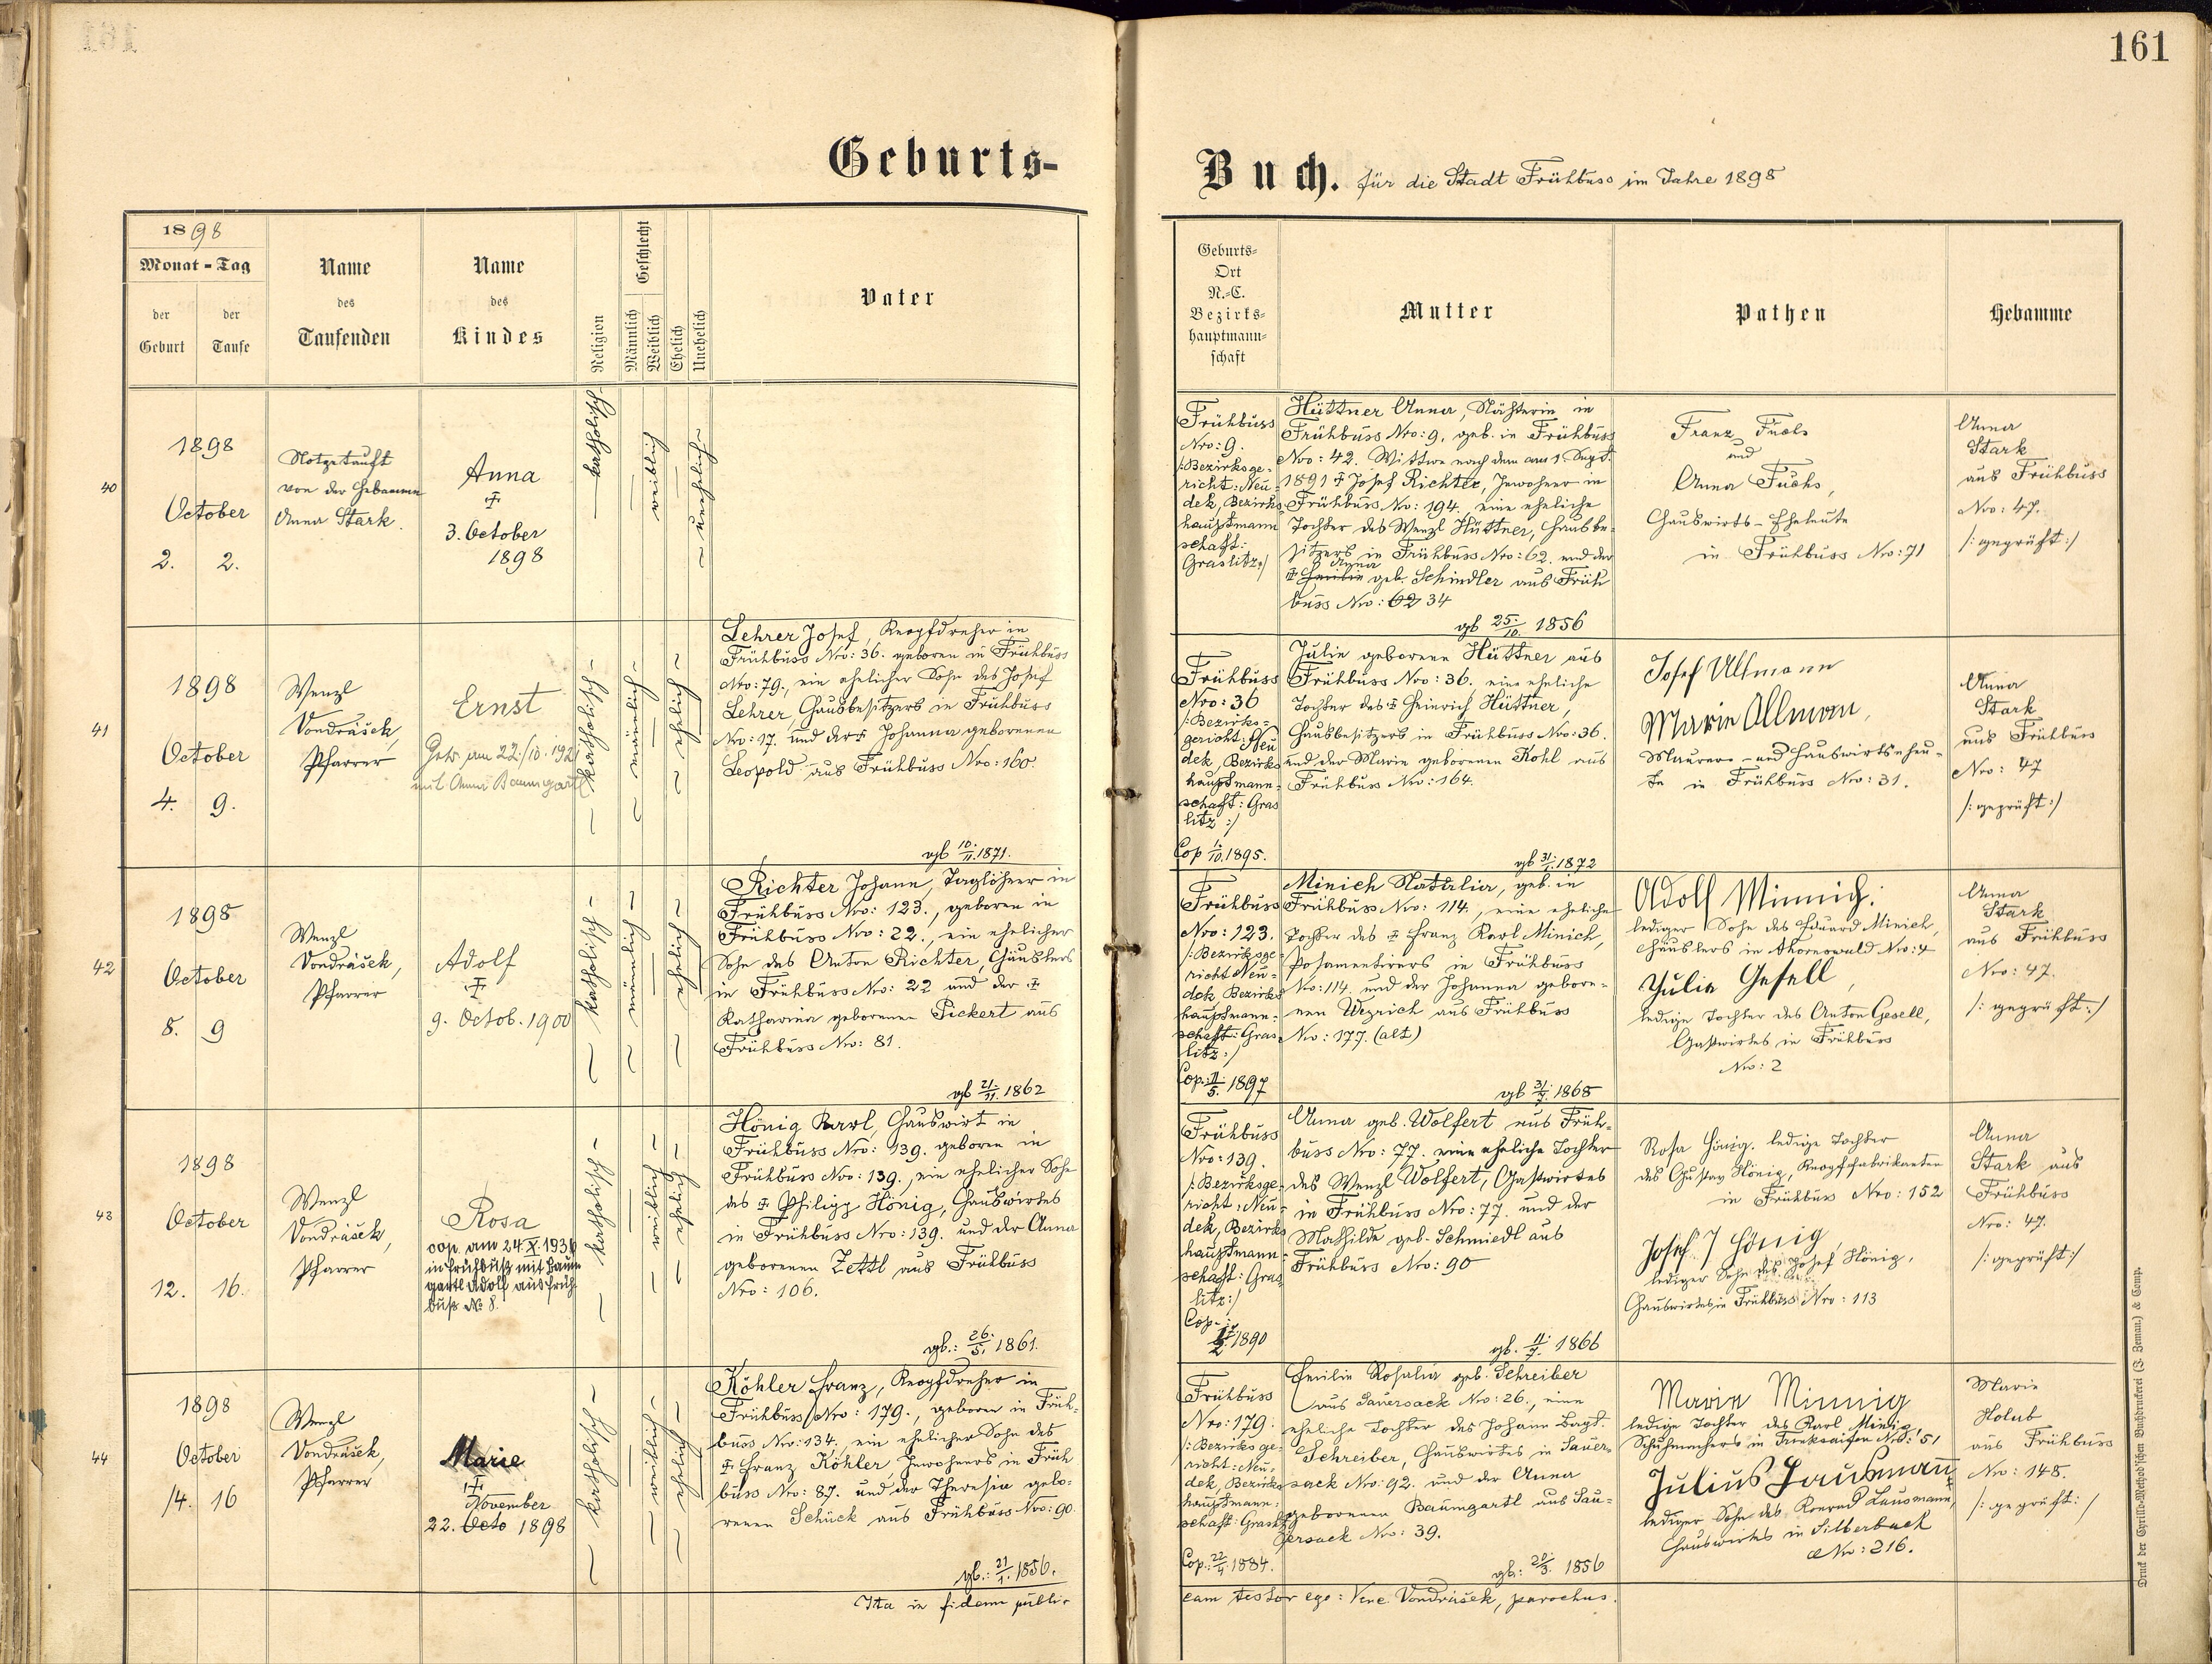 161
Geburts-
Buch. für die Stadt Frühbuss im Jahre 1898
1898
Monat - Tag
der Geburt
der Taufe
Name des Taufenden
Name des Kindes
Religion
Geschlecht
Männlich
Weiblich
Ehelich
Unehelich
Vater
Geburts-
Ort
N.-C.
Bezirks-
hauptmann-
schaft
Mutter
Pathen
Hebamme
40
1898
October
2. 2.
Notgetauft
von der Hebamme
Anna Stark.
Anna
‡
3. October
1898
katholisch
weiblich
unehelich
Frühbuss
Nro: 9.
/:Bezirksge-
richt: Neu-
dek, Bezirks-
hauptmann
schaft:
Graslitz:/
Hüttner Anna, Nähterin in
Frühbuss Nro: 9. geb. in Frühbuss
Nro: 42. Wittwe nach dem am 1. Sept.
1891 ‡ Josef Richter, Inwohner in
Frühbuss No: 194. eine eheliche
Tochter des Wenzl Hüttner, Hausbe-
sitzers in Frühbuss Nro: 62. und der
Anna
‡ Emilie geb. Schindler aus Früh
buss Nro: 62 34
gb 25./10. 1856
Franz Fuchs
und
Anna Fuchs,
Hauswirts-Eheleute
in Frühbuss Nro: 71
Anna
Stark
aus Frühbuss
Nro: 47.
/: geprüft :/
41
1898
October
4. 9.
Wenzl
Vondrášek,
Pfarrer
Ernst
Getr. am 22./10. 192
mit Anna Baumgartl
katholisch
männlich
ehelich
Lehrer Josef, Knopfdreher in
Frühbuss Nro: 36. geboren in Frühbuss
Nro: 79., ein ehelicher Sohn des Josef
Lehrer, Hausbesitzers in Frühbuss
No: 17. und der ‡ Johanna geborenen
Leopold aus Frühbuss Nro: 160.
gb 10./11. 1871.
Frühbuss
Nro: 36
/:Bezirks-
gericht: Neu
dek, Bezirks
hauptmann-
schaft: Gras
litz :/
Cop 1./10. 1895.
Julie geborene Hüttner aus
Frühbuss Nro: 36. eine eheliche
Tochter des ‡ Heinrich Hüttner,
Hausbesitzers in Frühbuss Nro: 36.
und der Marie geborenen Kohl aus
Frühbuss Nro: 164.
gb 31./1. 1872
Josef Ullmann
Marie Ullman,
Maurers- und Hauswirtseheleu-
te in Frühbuss Nro: 31.
Anna
Stark
aus Frühbuss
Nro: 47
/: geprüft :/
42
1898
October
8. 9
Wenzl
Vondrášek,
Pfarrer
Adolf
‡
9. Octob. 1900
katholisch
männlich
ehelich
Richter Johann, Taglöhner in
Frühbuss Nro: 123., geboren in
Frühbuss Nro: 22., ein ehelicher
Sohn des Anton Richter, Häuslers
in Frühbuss No: 22 und der ‡
Katharina geborenen Pickert aus
Frühbuss No: 81.
gb 21./11. 1862
Frühbuss
Nro: 123.
/:Bezirksge-
richt Neu-
dek, Bezirks
hauptmann-
schaft: Gras-
litz :/
Cop: 11./5. 1897
Minich Natalia, geb. in
Frühbuss No: 114., eine eheliche
Tochter des ‡ Franz Karl Minich,
Posamentirers in Frühbuss
No: 114. und der Johanna gebore-
nen Wezrich aus Frühbuss
No: 177. (alt)
gb 31./7. 1868
Adolf Minnich.
lediger Sohn des Eduard Minich,
Häuslers in Ahornswald Nro: 4
Julie Gesell,
ledige Tochter des Anton Gesell,
Gastwirtes in Frühbuss
Nro: 2
Anna
Stark
aus Frühbuss
Nro: 47.
/: geprüft :/
43
1898
October
12. 16.
Wenzl
Vondrášek,
Pfarrer
Rosa
cop. am 24. X. 1936
in Frühbuß mit Baum
gartl Adolf aus Früh-
buß No 8.
katholisch
weiblich
ehelich
Hönig Karl, Hauswirt in
Frühbuss Nro: 139. geboren in
Frühbuss Nro: 139., ein ehelicher Sohn
des ‡ Philipp Hönig, Hauswirtes
in Frühbuss Nro: 139. und der Anna
geborenen Zettl aus Frühbuss
Nro: 106.
gb.: 26./5. 1861.
Frühbuss
Nro: 139.
/:Bezirksge-
richt: Neu-
dek, Bezirks
hauptmann-
schaft: Gras-
litz:/
Cop-:
1890
Anna geb. Wolfert aus Früh-
buss Nro: 77. eine eheliche Tochter
des Wenzl Wolfert, Gastwirtes
in Frühbuss Nro: 77. und der
Mathilde geb. Schmiedl aus
Frühbuss Nro: 90
gb. 11./7. 1866
Rosa Hönig. ledige Tochter
des Gustav Hönig, Knopffabrikanten
in Frühbuss Nro: 152
Josef Hönig
lediger Sohn des Josef Hönig,
Hauswirtes in Frühbuss Nro: 113
Anna
Stark aus
Frühbuss
Nro: 47.
/: geprüft :/
44
1898
October
14. 16
Wenzl
Vondrášek,
Pfarrer
Marie
‡
November
22. Octo 1898
katholisch
weiblich
ehelich
Köhler Franz, Knopfdreher in
Frühbuss Nro: 179., geboren in Früh-
buss No: 134., ein ehelicher Sohn des
‡ Franz Köhler, Inwohners in Früh
buss Nro: 87. und der Theresia gebo-
renen Schück aus Frühbuss Nro: 90.
gb.: 21./1. 1856.
Frühbuss
Nro: 179.
/:Bezirksge-
richt: Neu,
dek, Bezirks
hauptmann-
schaft: Graslitz
Cop.: 22./4. 1884.
Emilie Rosalia geb. Schreiber
aus Sauersack No: 26., eine
eheliche Tochter des Johann Bapt.
Schreiber, Hauswirtes in Sauer-
sack No: 92. und der Anna
geborenen Baumgartl aus Sau-
ersack No: 39.
gb.: 20./3. 1856
Marie Minnig
ledige Tochter des Karl Minnig,
Schuhmachers in Trinksaifen No: 51
Julius Lausmann
lediger Sohn des Konrad Lausmann,
Hauswirtes in Silberbach
No: 216.
Marie
Holub
aus Frühbuss
No: 148.
/: geprüft: /
Ita in fidem publi-
cam testor ego: Venc. Vondrášek, parochus.
Druck der Cyrillo-Method'schen Buchdruckerei (J. Zeman) & Comp.